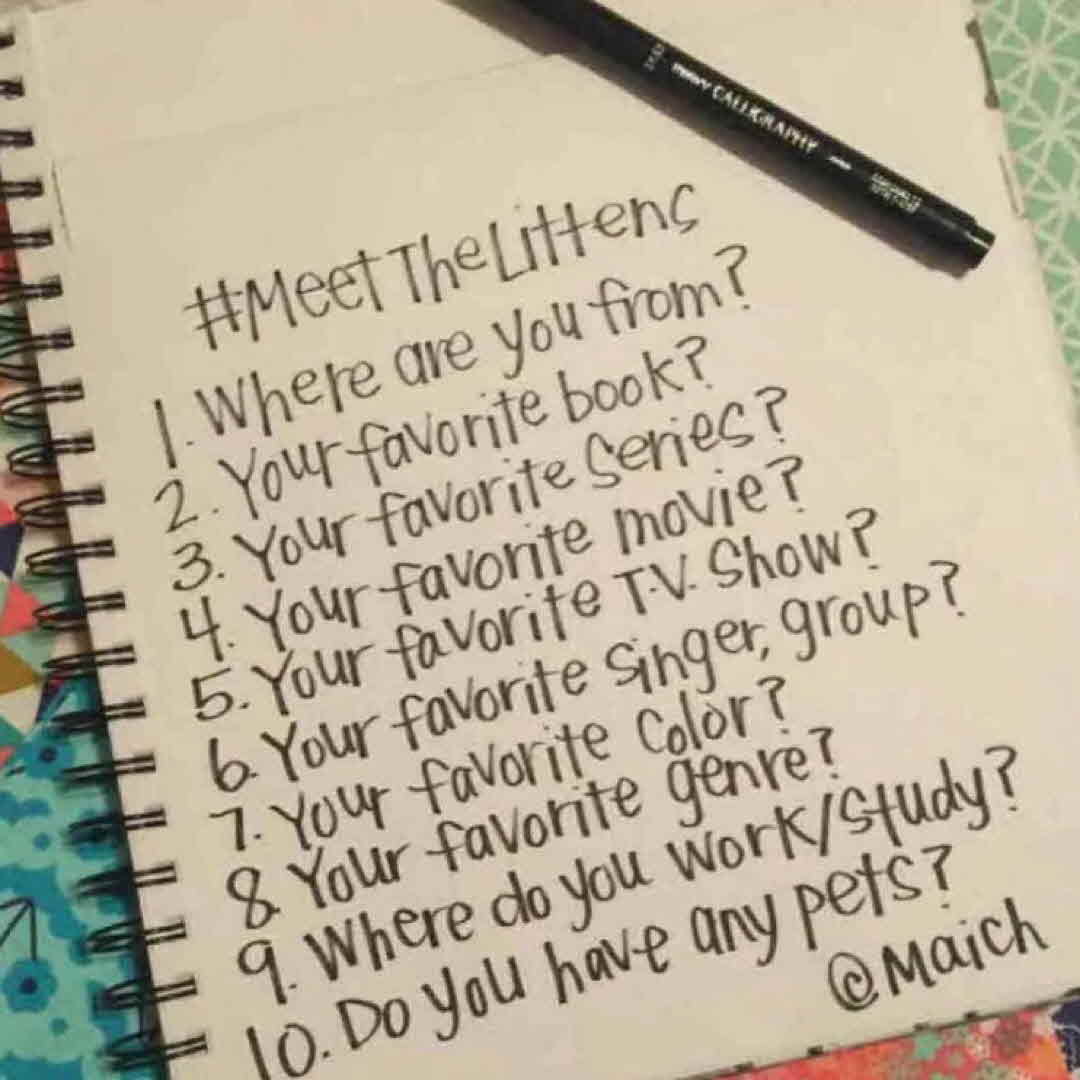 CALLIGRAPHY
#MeetTheLittens
1. Where are you from?
2. Your favorite book?
3. Your favorite Series?
4. Your favorite movie?
5. Your favorite T.V. Show?
6. Your favorite singer, group?
7. Your favorite Color?
8. Your favorite genre?
9. Where do you work/study?
10. Do you have any pets?
@Maich